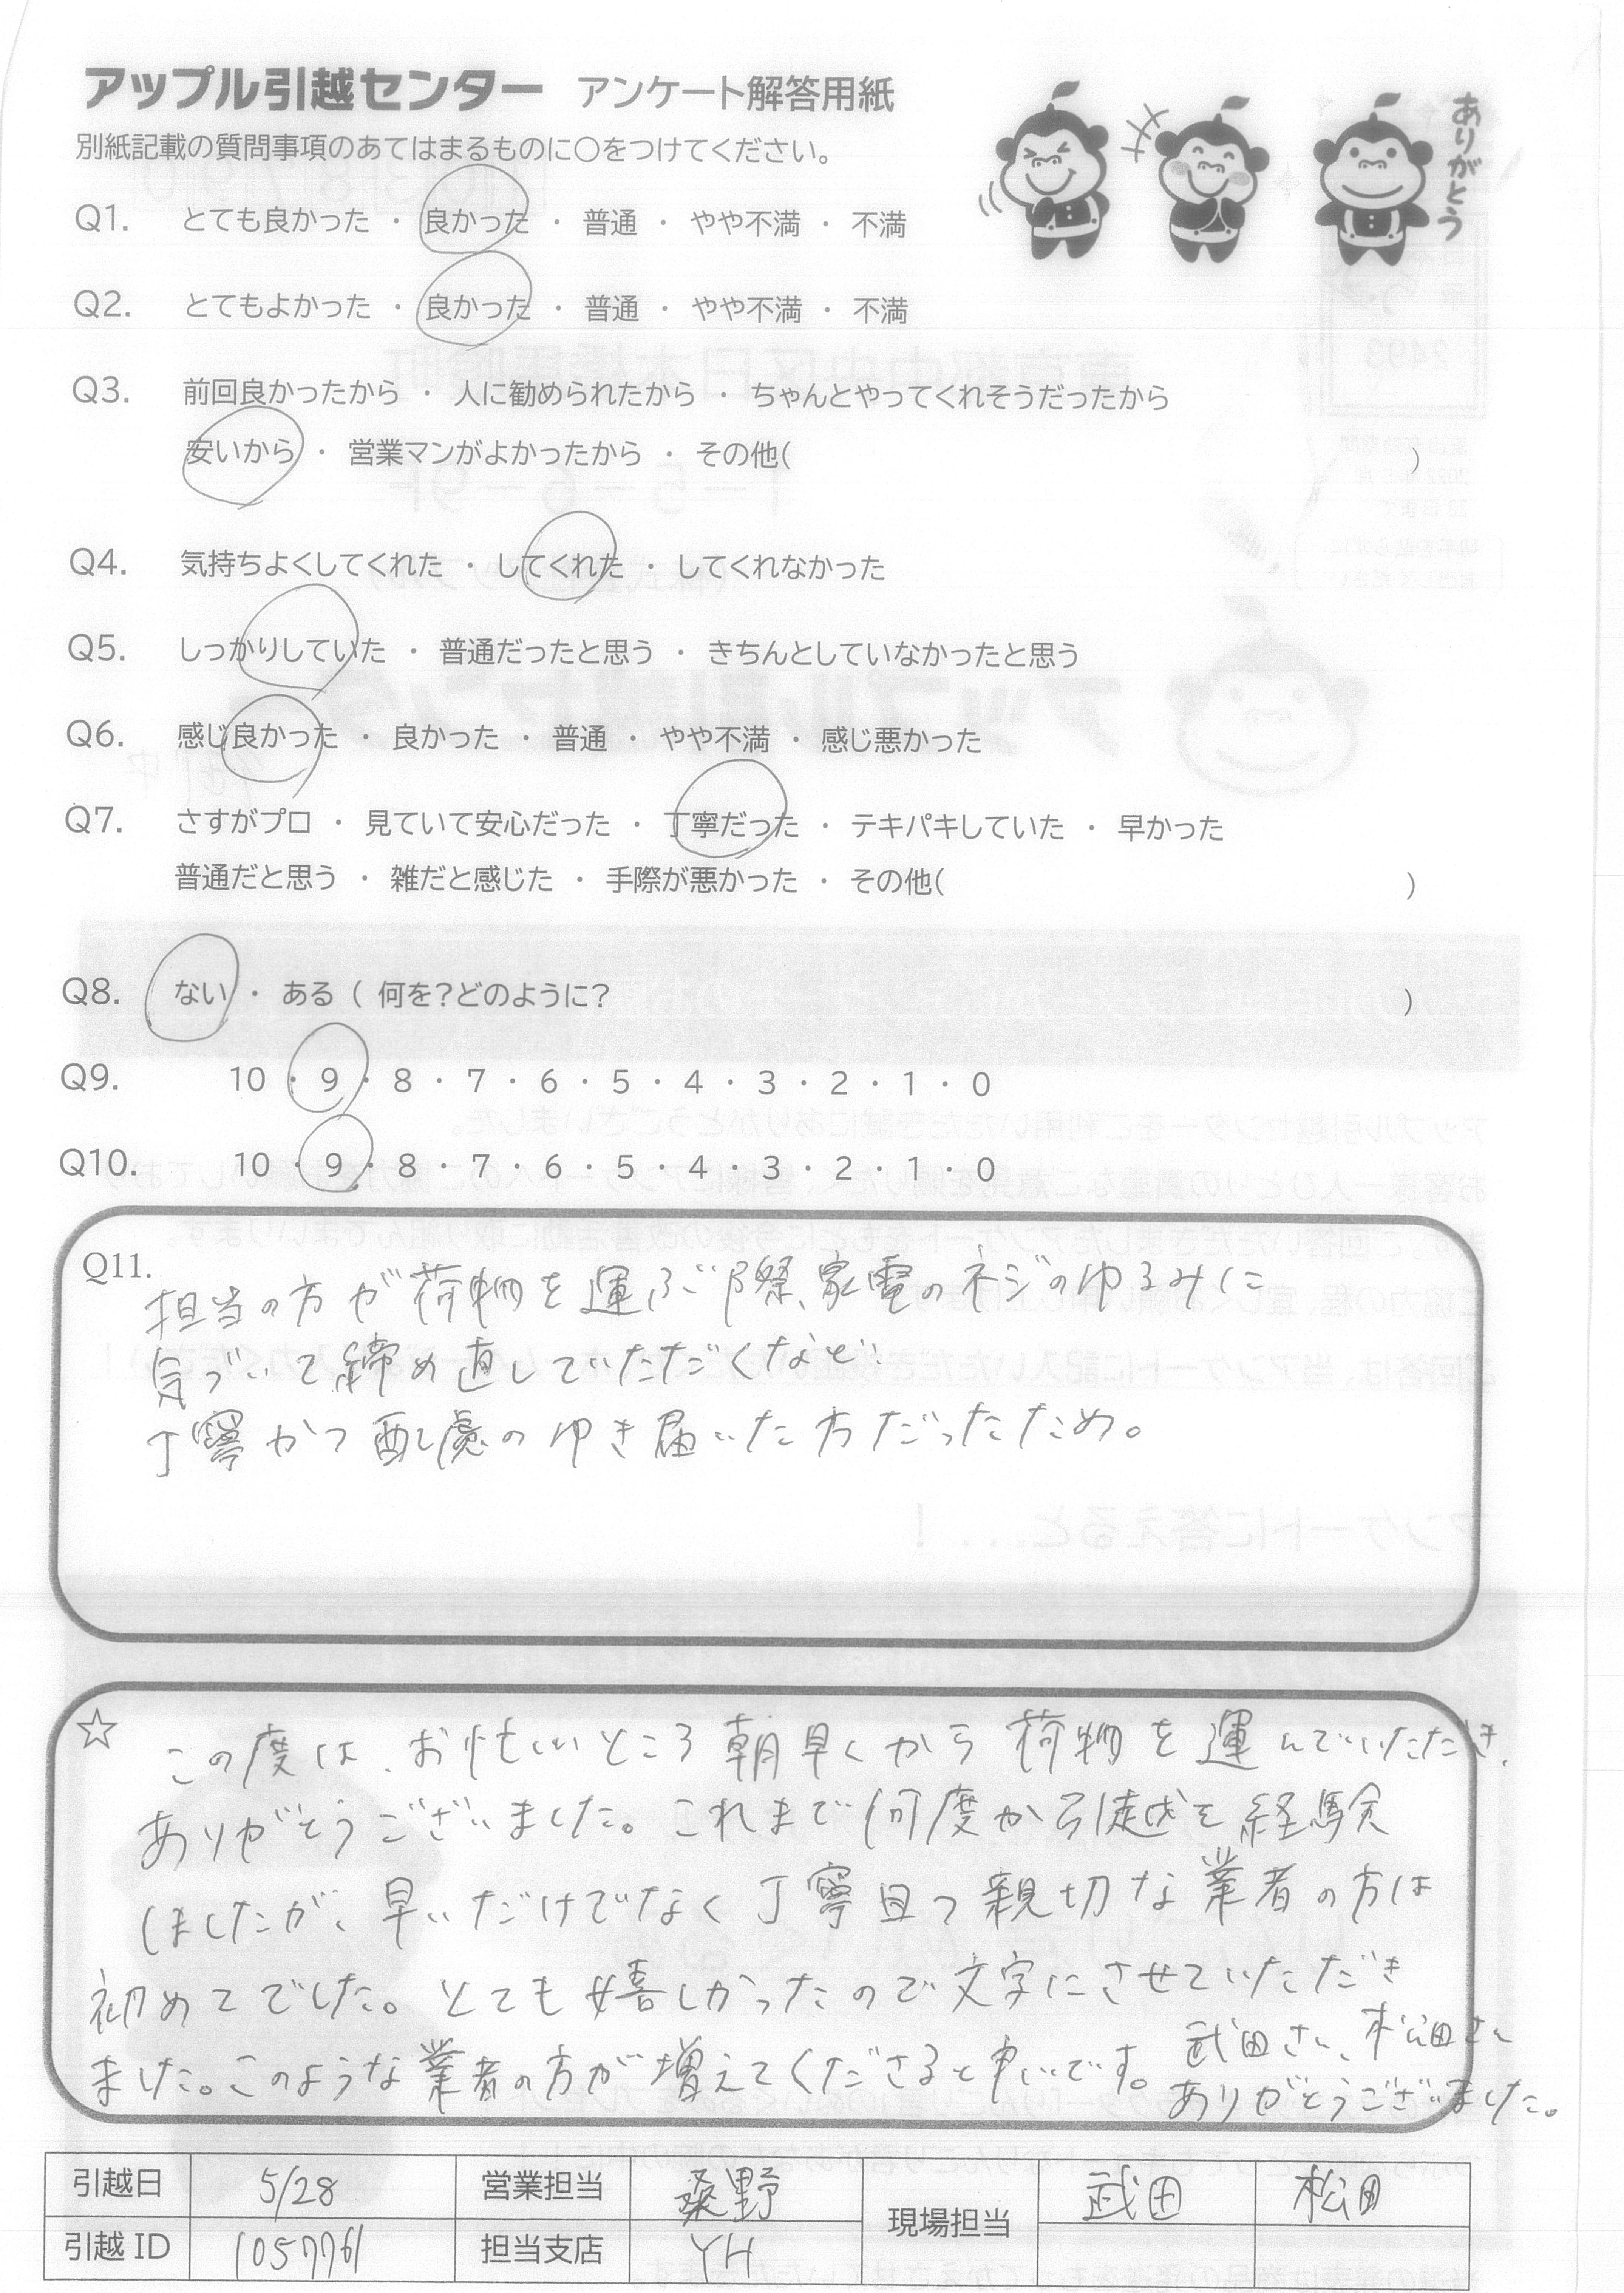 アップル引越センター アンケート解答用紙
別紙記載の質問事項のあてはまるものに〇をつけてください。
ありがとう
Q1. とても良かった ・ 良かった ・ 普通 ・ やや不満 ・ 不満
Q2. とてもよかった ・ 良かった ・ 普通 ・ やや不満 ・ 不満
Q3. 前回良かったから ・ 人に勧められたから ・ ちゃんとやってくれそうだったから
安いから ・ 営業マンがよかったから ・ その他( )
Q4. 気持ちよくしてくれた ・ してくれた ・ してくれなかった
Q5. しっかりしていた ・ 普通だったと思う ・ きちんとしていなかったと思う
Q6. 感じ良かった ・ 良かった ・ 普通 ・ やや不満 ・ 感じ悪かった
Q7. さすがプロ ・ 見ていて安心だった ・ 丁寧だった ・ テキパキしていた ・ 早かった
普通だと思う ・ 雑だと感じた ・ 手際が悪かった ・ その他( )
Q8. ない ・ ある ( 何を?どのように? )
Q9. 10 ・ 9 ・ 8 ・ 7 ・ 6 ・ 5 ・ 4 ・ 3 ・ 2 ・ 1 ・ 0
Q10. 10 ・ 9 ・ 8 ・ 7 ・ 6 ・ 5 ・ 4 ・ 3 ・ 2 ・ 1 ・ 0
Q11.
担当の方が荷物を運ぶ際、家電のネジのゆるみに
気づいて締め直していただくなど、
丁寧かつ配慮のゆき届いた方だったため。
☆
この度は、お忙しいところ朝早くから荷物を運んでいただき、
ありがとうございました。これまで何度か引越を経験
しましたが、早いだけでなく丁寧且つ親切な業者の方は
初めてでした。とても嬉しかったので文字にさせていただき
ました。このような業者の方が増えてくださると幸いです。
武田さん、松田さん
ありがとうございました。
引越日 5/28 営業担当 桑野 現場担当 武田 松田
引越 ID 1057761 担当支店 YH